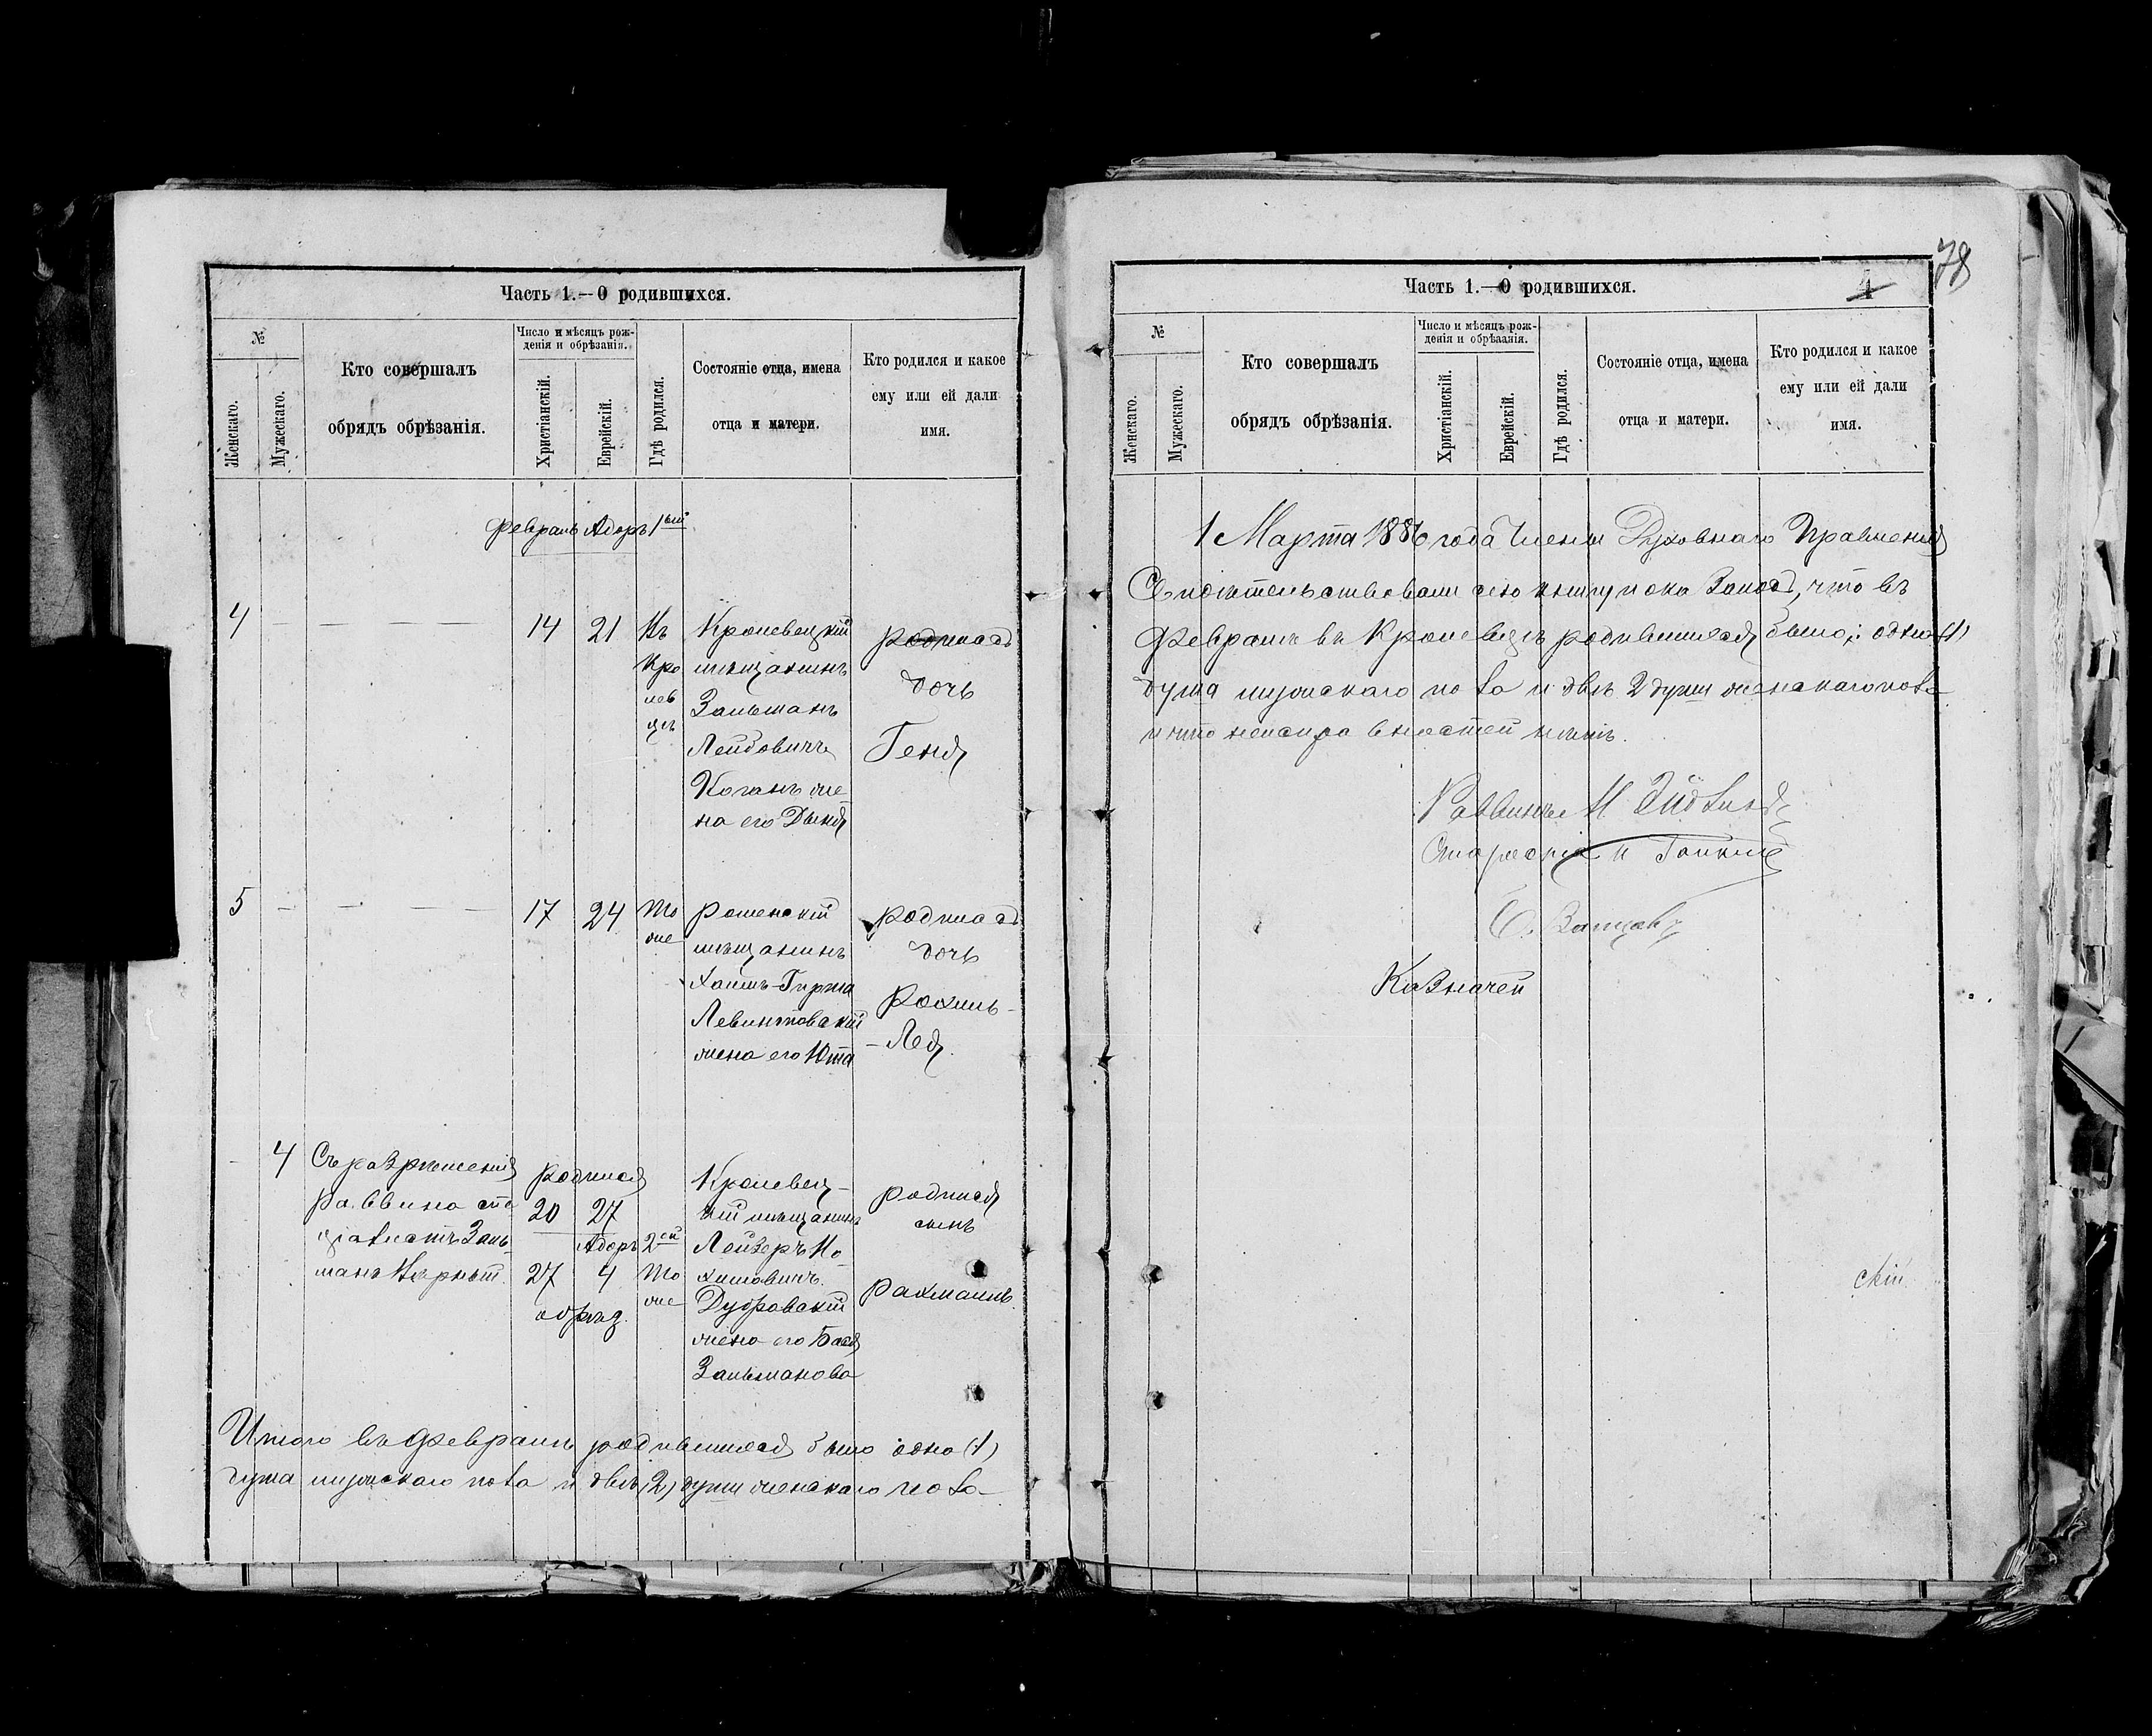 Часть 1.—О родившихся.
№
Женскаго.
Мужескаго.
Кто совершалъ
обрядъ обрѣзанія.
Число и мѣсяцъ рож-
денія и обрѣзанія.
Христіанскій.
Еврейскій.
Гдѣ родился.
Состояніе отца, имена
отца и матери.
Кто родился и какое
ему или ей дали
имя.
Февраль Адоръ 1ый
4
14
21
Въ
Кро
лев
цѣ
Кролевецкій
мѣщанинъ
Зальманъ
Лейбовичъ
Коганъ же-
на его Дыня
родилась
дочь
Геня
5
17
24
То
же
Роменскій
мѣщанинъ
Хаимъ-Гирша
Левинтовскій
жена его Юта
родилась
дочь
Рохиль-
-Лея.
4
Съ разрѣшенія
Раввина спе
ціалистъ Заль-
манъ
родился
20 27
Адоръ 2ой
27 4
обрѣз.
То
же
Кролевец-
кій мѣщанинъ
Лейзеръ Но
химовичъ
Дубровскій
жена его Бася
Зальманова
родился
сынъ
Рахмаилъ.
Итого въ Февралѣ родившихся было одна (1)
душа мужскаго пола и двѣ (2) души женскаго пола
78
4
Часть 1.—О родившихся.
№
Женскаго.
Мужескаго.
Кто совершалъ
обрядъ обрѣзанія.
Число и мѣсяцъ рож-
денія и обрѣзанія.
Христіанскій.
Еврейскій.
Гдѣ родился.
Состояніе отца, имена
отца и матери.
Кто родился и какое
ему или ей дали
имя.
1 Марта 1886 года Члены Духовнаго Правленія
Свидѣтельствовали сею книгу и оказалось, что въ
Февралѣ въ Кролевцѣ родившихся было: одна (1)
душа мужскаго пола и двѣ 2 души женскаго пола
и что неисправностей нѣтъ.
Раввинъ
Староста
Казначей
скій